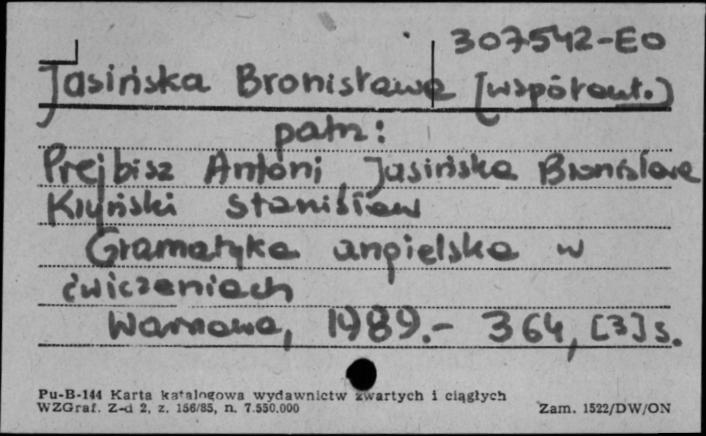 307542-EO
Jasińska Bronisława [współaut.]
patrz:
Prejbisz Antoni, Jasińska Bronisława
Kryński Stanisław
Gramatyka angielska w
ćwiczeniach
Warszawa, 1989.- 364, [3] s.
Pu-B-144 Karta katalogowa wydawnictw zwartych i ciągłych
WZGraf. Z-d 2, z. 156/85, n. 7.550.000 Zam. 1522/DW/ON